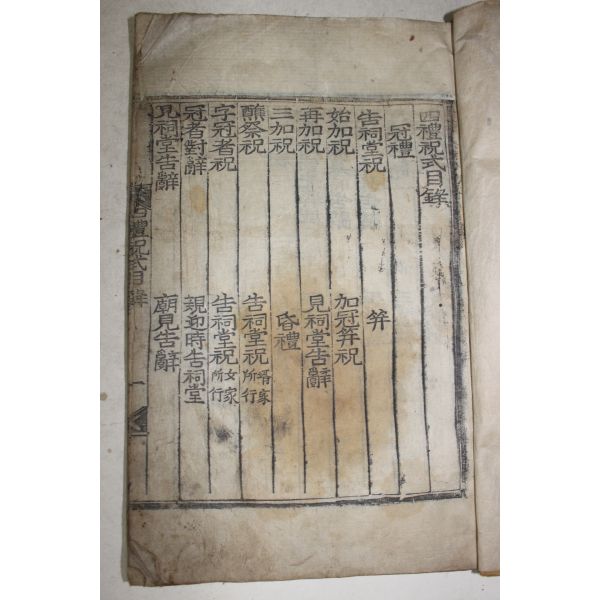 四禮祝式目錄
冠禮
告祠堂祝
笄
始加祝
加冠笄祝
再加祝
見祠堂告辭
三加祝
昏禮
醮祭祝
告祠堂祝 壻家所行
字冠者祝
告祠堂祝 女家所行
冠者對辭
親迎時告祠堂
見祠堂告辭
廟見告辭
四禮祝式目錄
一